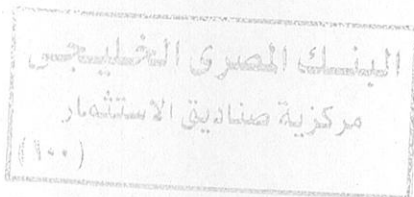 البنك المصرى الخليجى
مركزية صناديق الاستثمار
(١٠٠)